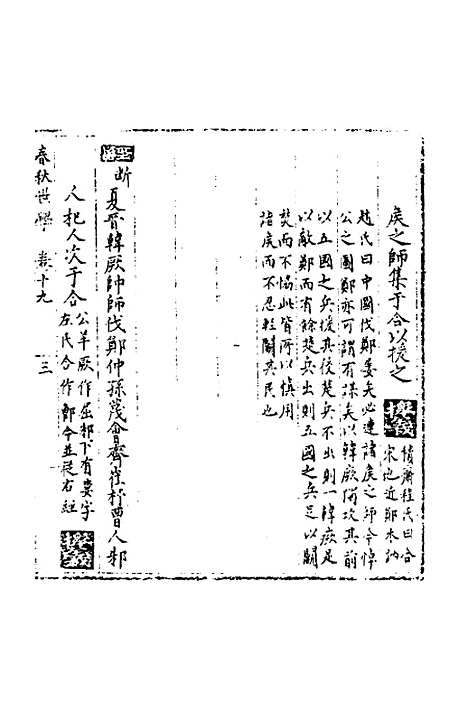 侯之師集于合以援之
撰義
積齋程氏曰合
宋也近鄭木訥
趙氏曰中國伐鄭屢矣必連諸侯之師今悼
公之圖鄭亦可謂有謀矣以韓厥偏攻其前
以五國之兵援其後楚兵不出則一韓厥足
以敵鄭而有餘楚兵出則五國之兵足以鬬
楚而不怯此皆所以慎用
諸侯而不忍輕鬬其民也
聖
斷
夏晉韓厥帥師伐鄭仲孫蔑會齊崔杼曹人邾
人杞人次于合
公羊厥作屈邾下有婁字
左氏合作鄫今並從右經
撰義
春秋世學 卷十九 三